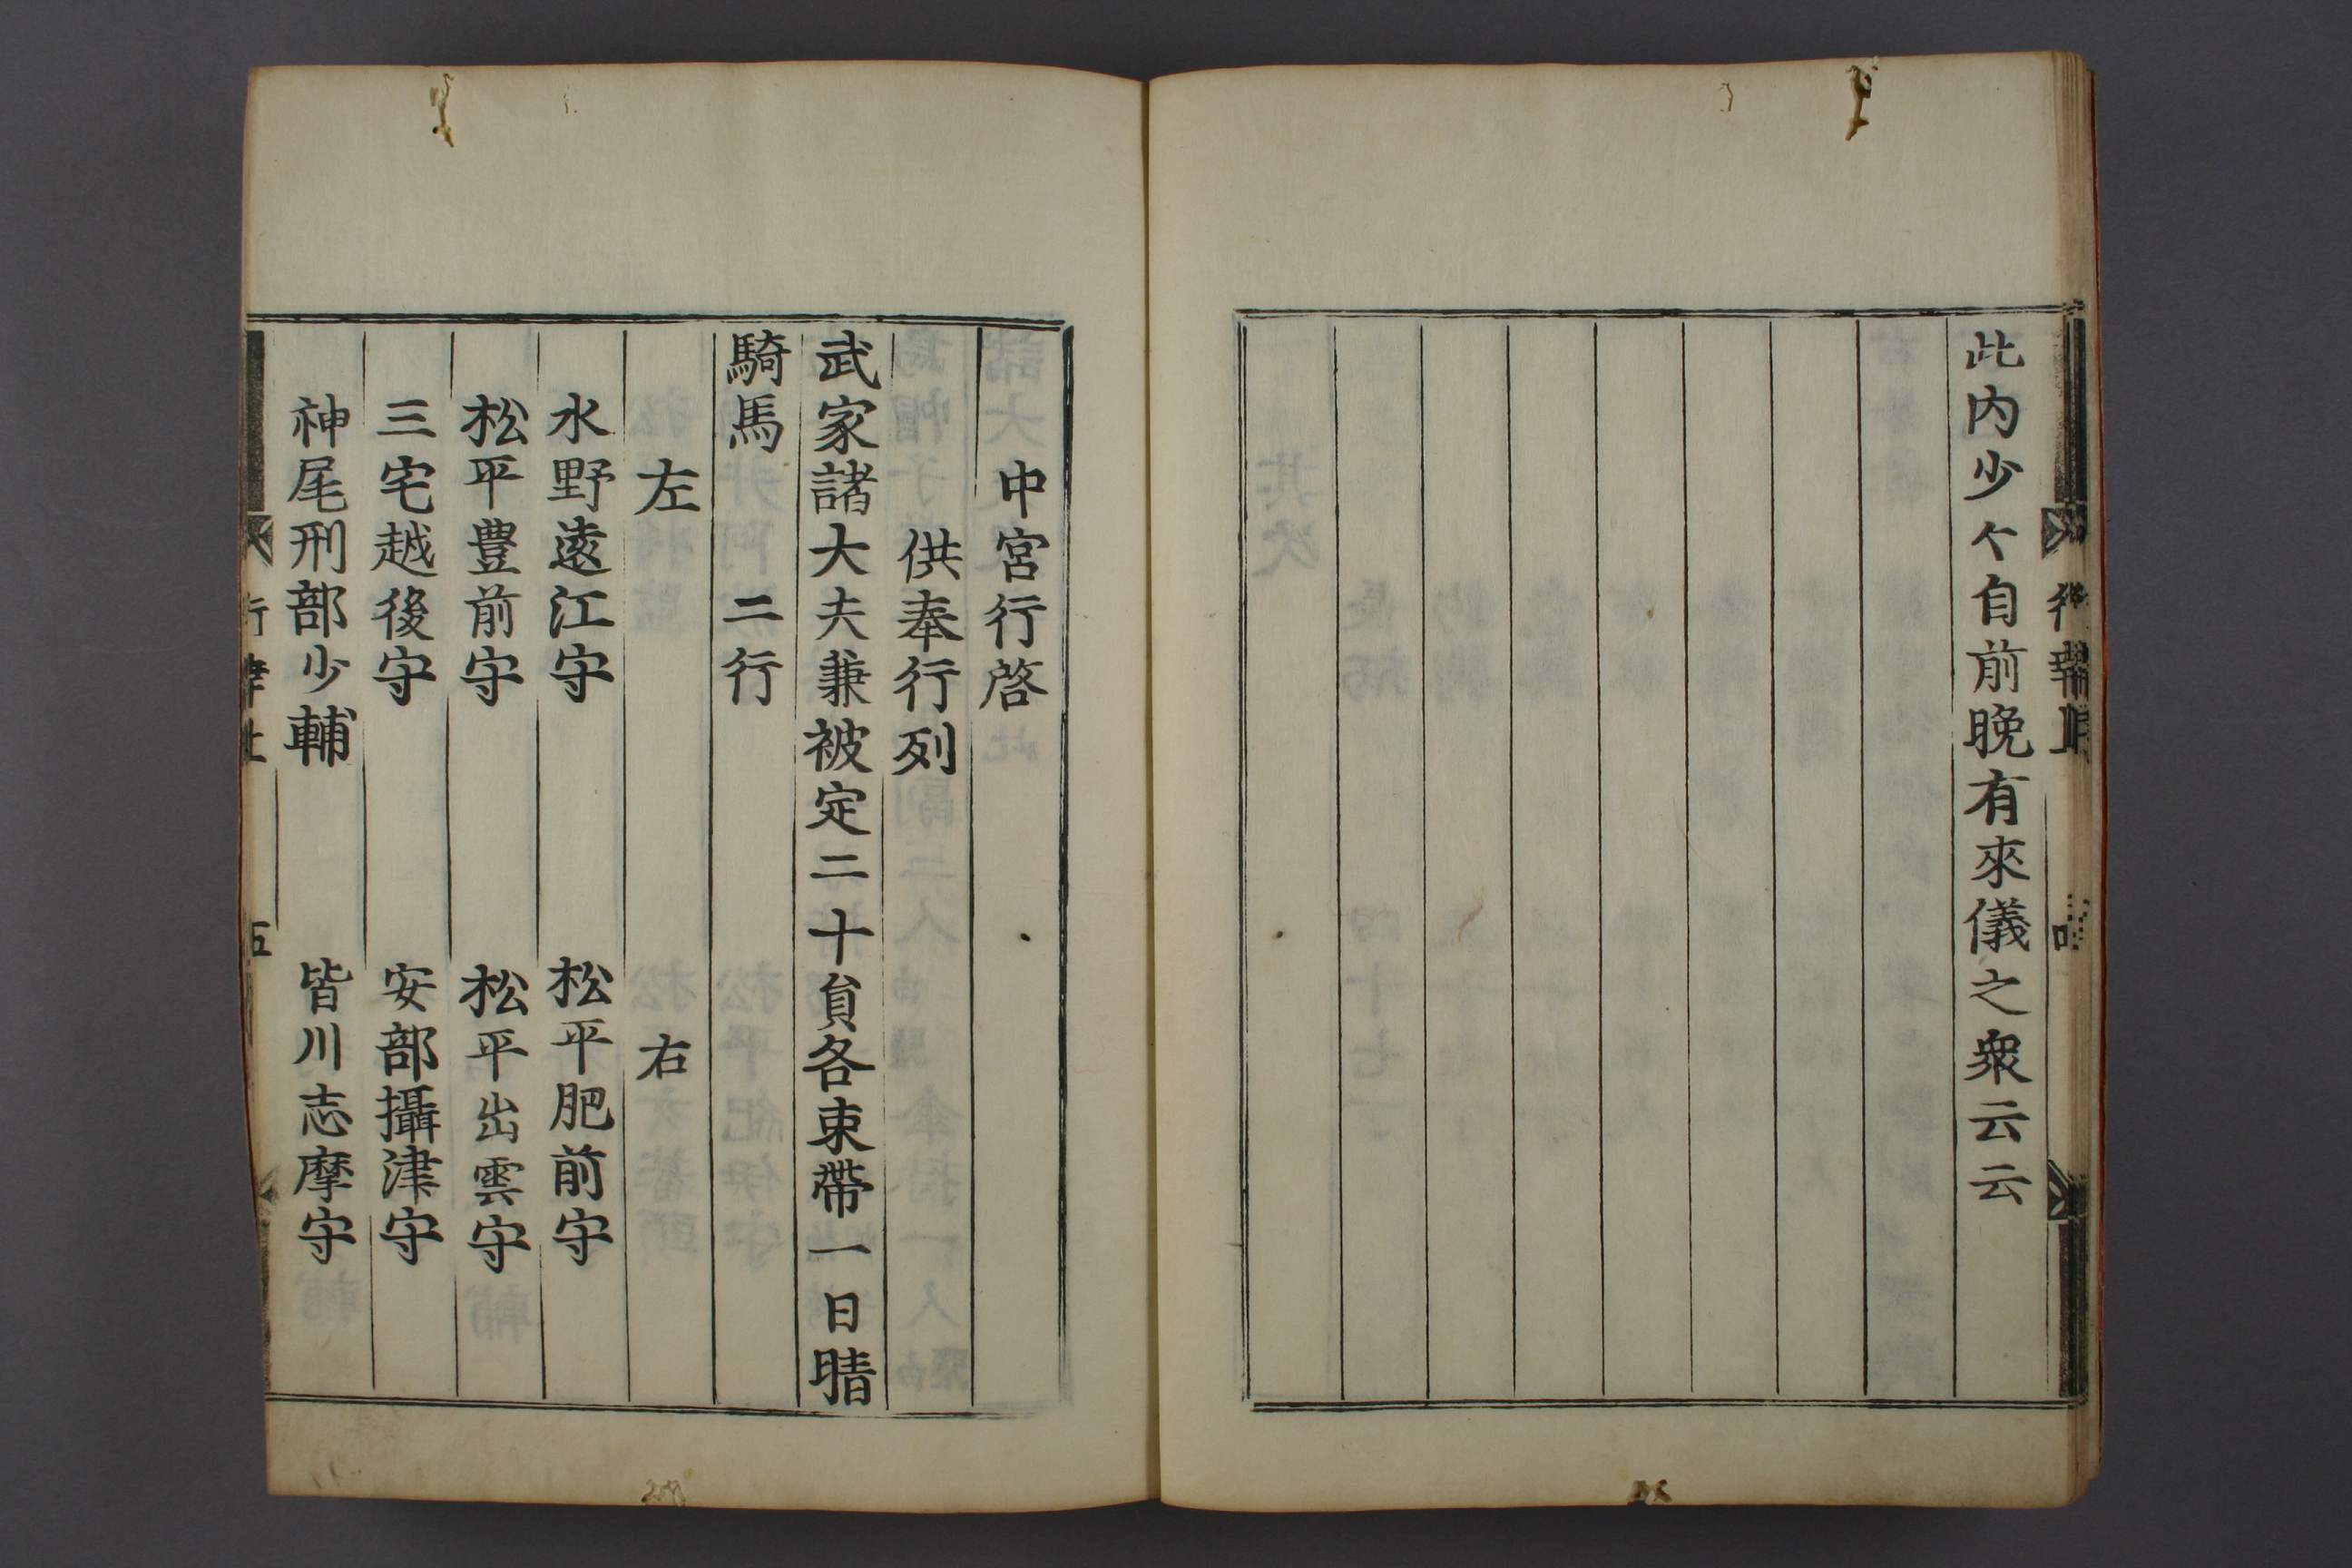 此内少々自前晩有來儀之衆云云
中宮行啓
供奉行列
武家諸大夫兼被定二十負各束帶一日晴
騎馬　二行
左　右
水野遠江守　松平肥前守
松平豊前守　松平出雲守
三宅越後守　安部攝津守
神尾刑部少輔　皆川志摩守
五